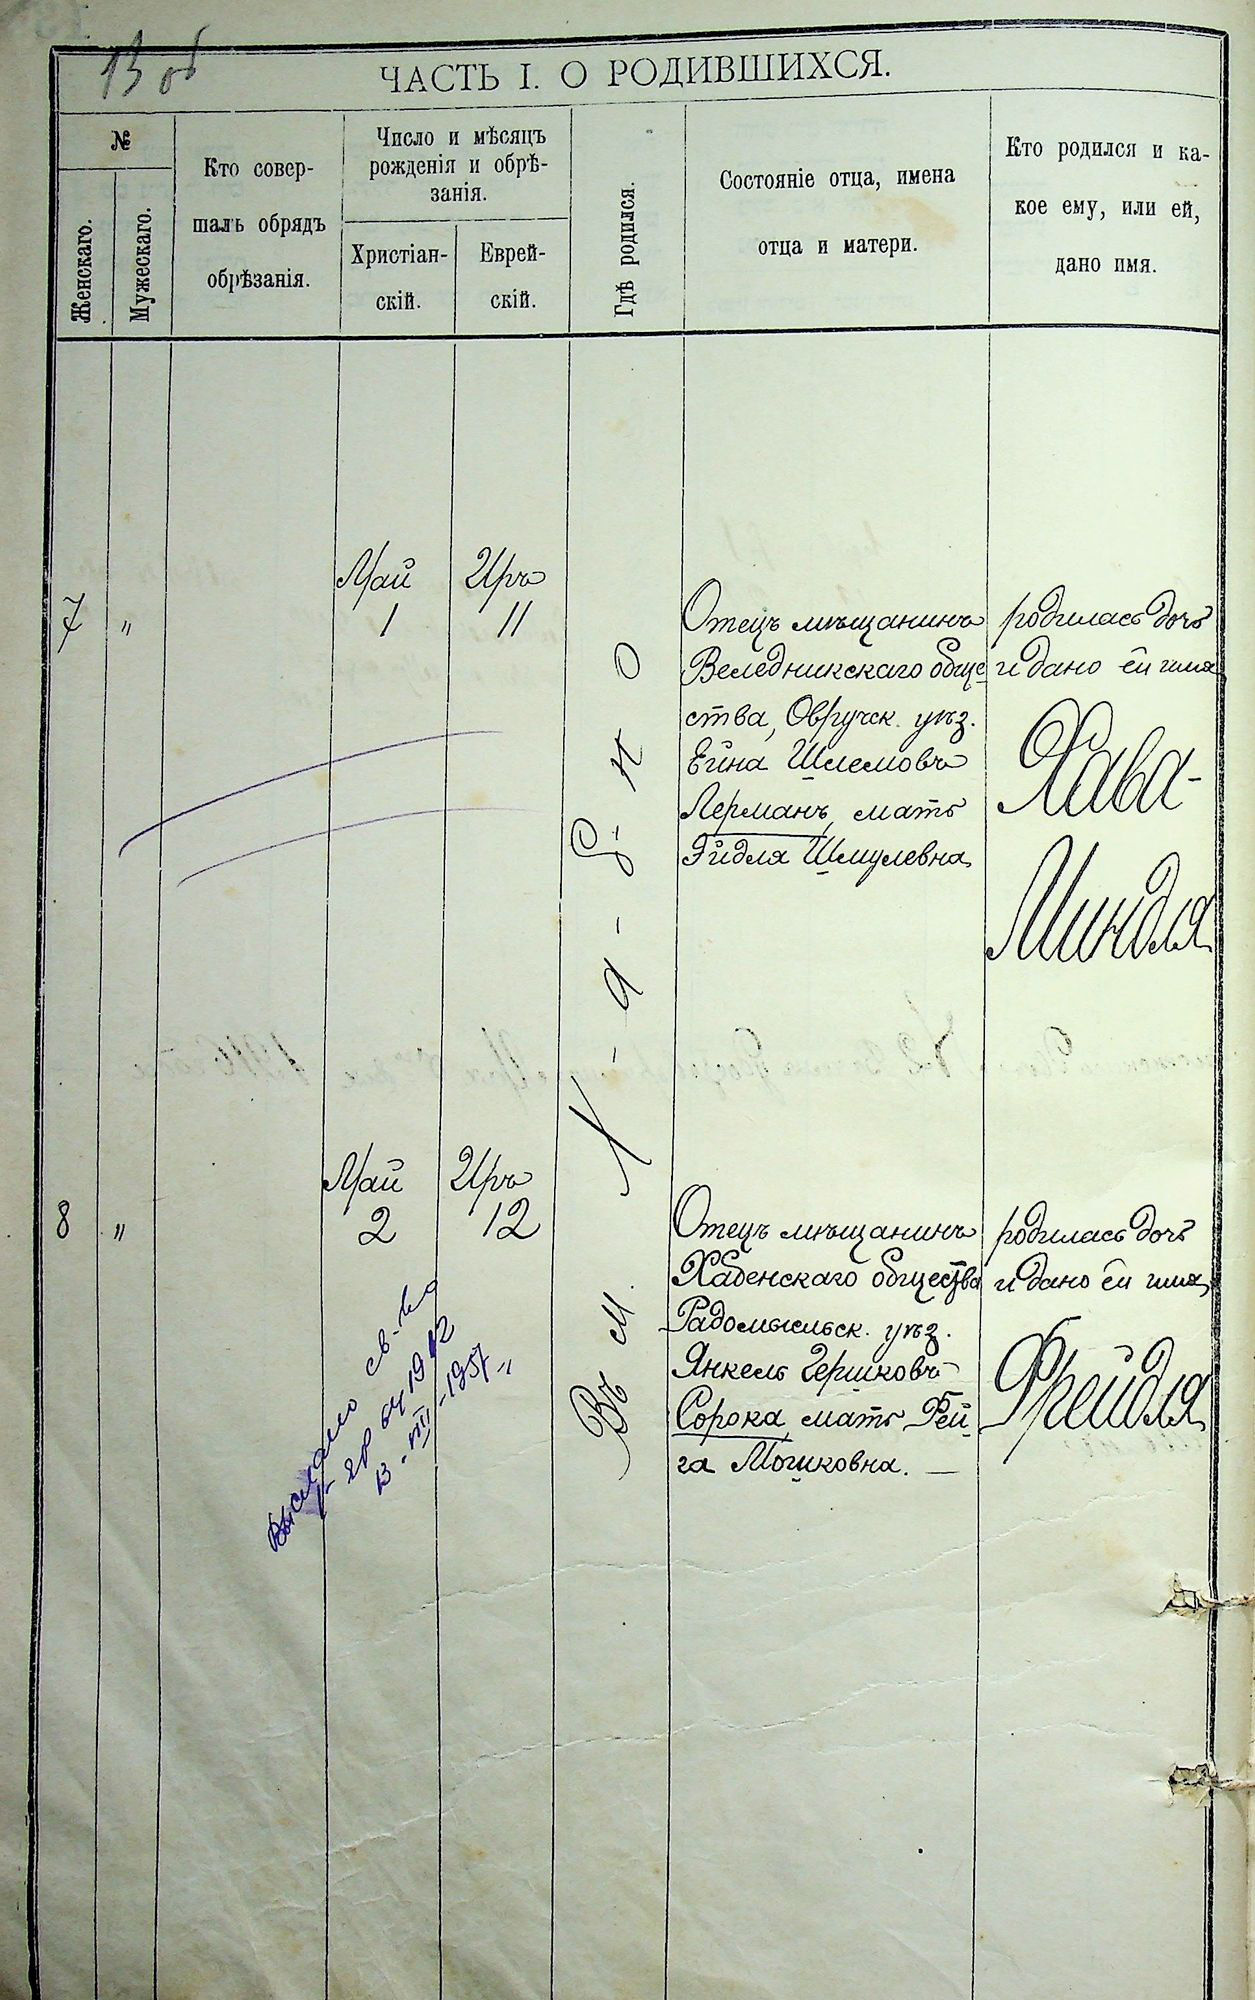 13 об
ЧАСТЬ I. О РОДИВШИХСЯ.
№
Женскаго.
Мужескаго.
Кто совер-
шалъ обрядъ
обрѣзанія.
Число и мѣсяцъ
рожденія и обрѣ-
занія.
Христіан-
скій.
Еврей-
скій.
Гдѣ родился.
Состояніе отца, имена
отца и матери.
Кто родился и ка-
кое ему, или ей,
дано имя.
7
"
Май
1
Иръ
11
Въ м. Х-а-б-н о
Отецъ мѣщанинъ
Веледникскаго обще-
ства, Овручск. уѣз.
Ейна Шлемовъ
Лерманъ, мать
Эйдля Шмулевна
родилась дочь
и дано ей имя
Хава-
Миндля
8
"
Май
2
Иръ
12
Отецъ мѣщанинъ
Хабенскаго общества
Радомысльск. уѣз.
Янкель Гершковъ
Сорока, мать Фей-
га Мошковна. —
родилась дочь
и дано ей имя
Фрейдля
Выслано св-во
13-VIII-1957